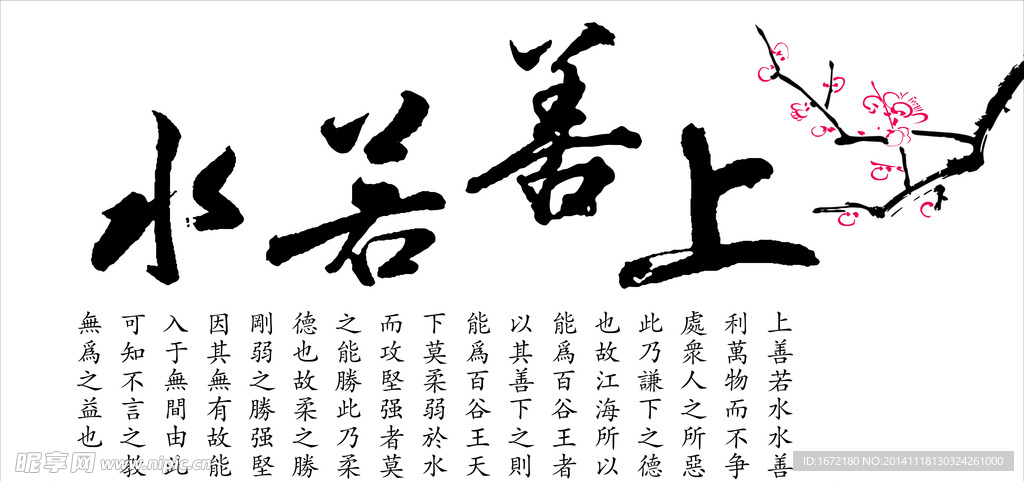 上善若水
上善若水水善
利萬物而不争
處衆人之所惡
此乃謙下之德
也故江海所以
能爲百谷王者
以其善下之則
能爲百谷王天
下莫柔弱於水
而攻堅强者莫
之能勝此乃柔
德也故柔之勝
剛弱之勝强堅
因其無有故能
入于無間由此
可知不言之教
無爲之益也
昵享网 www.nipic.cn
ID:1672180 NO:20141118130324261000